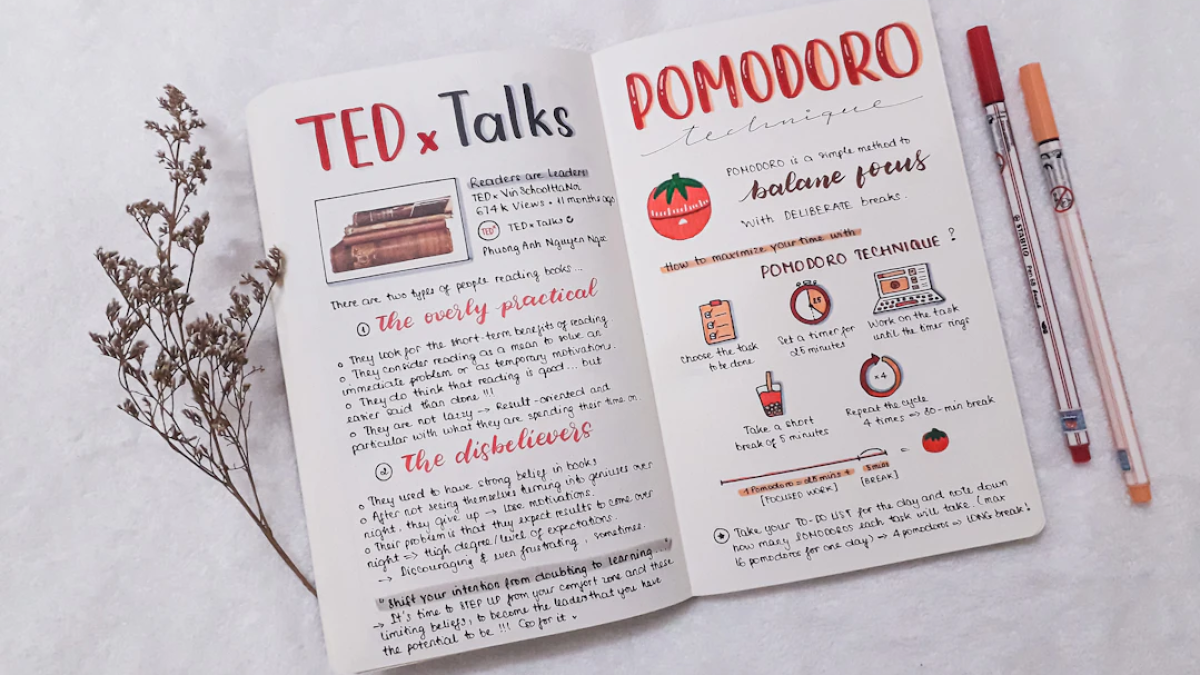 TED x Talks
Readers are leaders
TEDx VinSchoolHaNoi
674k Views • 11 months ago
TED TEDx Talks
Phuong Anh Nguyen Ngoc
There are two types of people reading books...
1 The overly practical
o They look for the short-term benefits of reading
o They consider reading as a mean to solve an
immediate problem or as temporary motivation.
o They do think that reading is good... but
easier said than done !!!
o They are not lazzy → Result-oriented and
particular with what they are spending their time on.
2 The disbelievers
o They used to have strong belief in books
o After not seeing themselves turning into geniuses over
night, they give up → lose motivations.
o Their problem is that they expect results to come over
night => High degree/level of expectations.
→ Discouraging & even frustrating, sometimes.
" Shift your intention from doubting to learning... "
→ It's time to STEP UP from your comfort zone and these
limiting beliefs, to become the leader that you have
the potential to be !!! Go for it
POMODORO
technique
POMODORO is a simple method to
balane focus
With DELIBERATE breaks.
How to maximize your time with
POMODORO TECHNIQUE ?
Choose the task
to be done
25
Set a timer for
25 minutes
Work on the task
until the timer rings
Take a short
break of 5 minutes
x4
Repeat the cycle
4 times => 30-min break
1 Pomodoro = 25 mins + 5 mins =
[FOCUSED WORK] [BREAK]
Take your TO-DO LIST for the day and note down
how many POMODOROS each task will take. (max
16 pomodoros for one day) → 4 pomodoros => LONG break!
STABILO
Pen 68